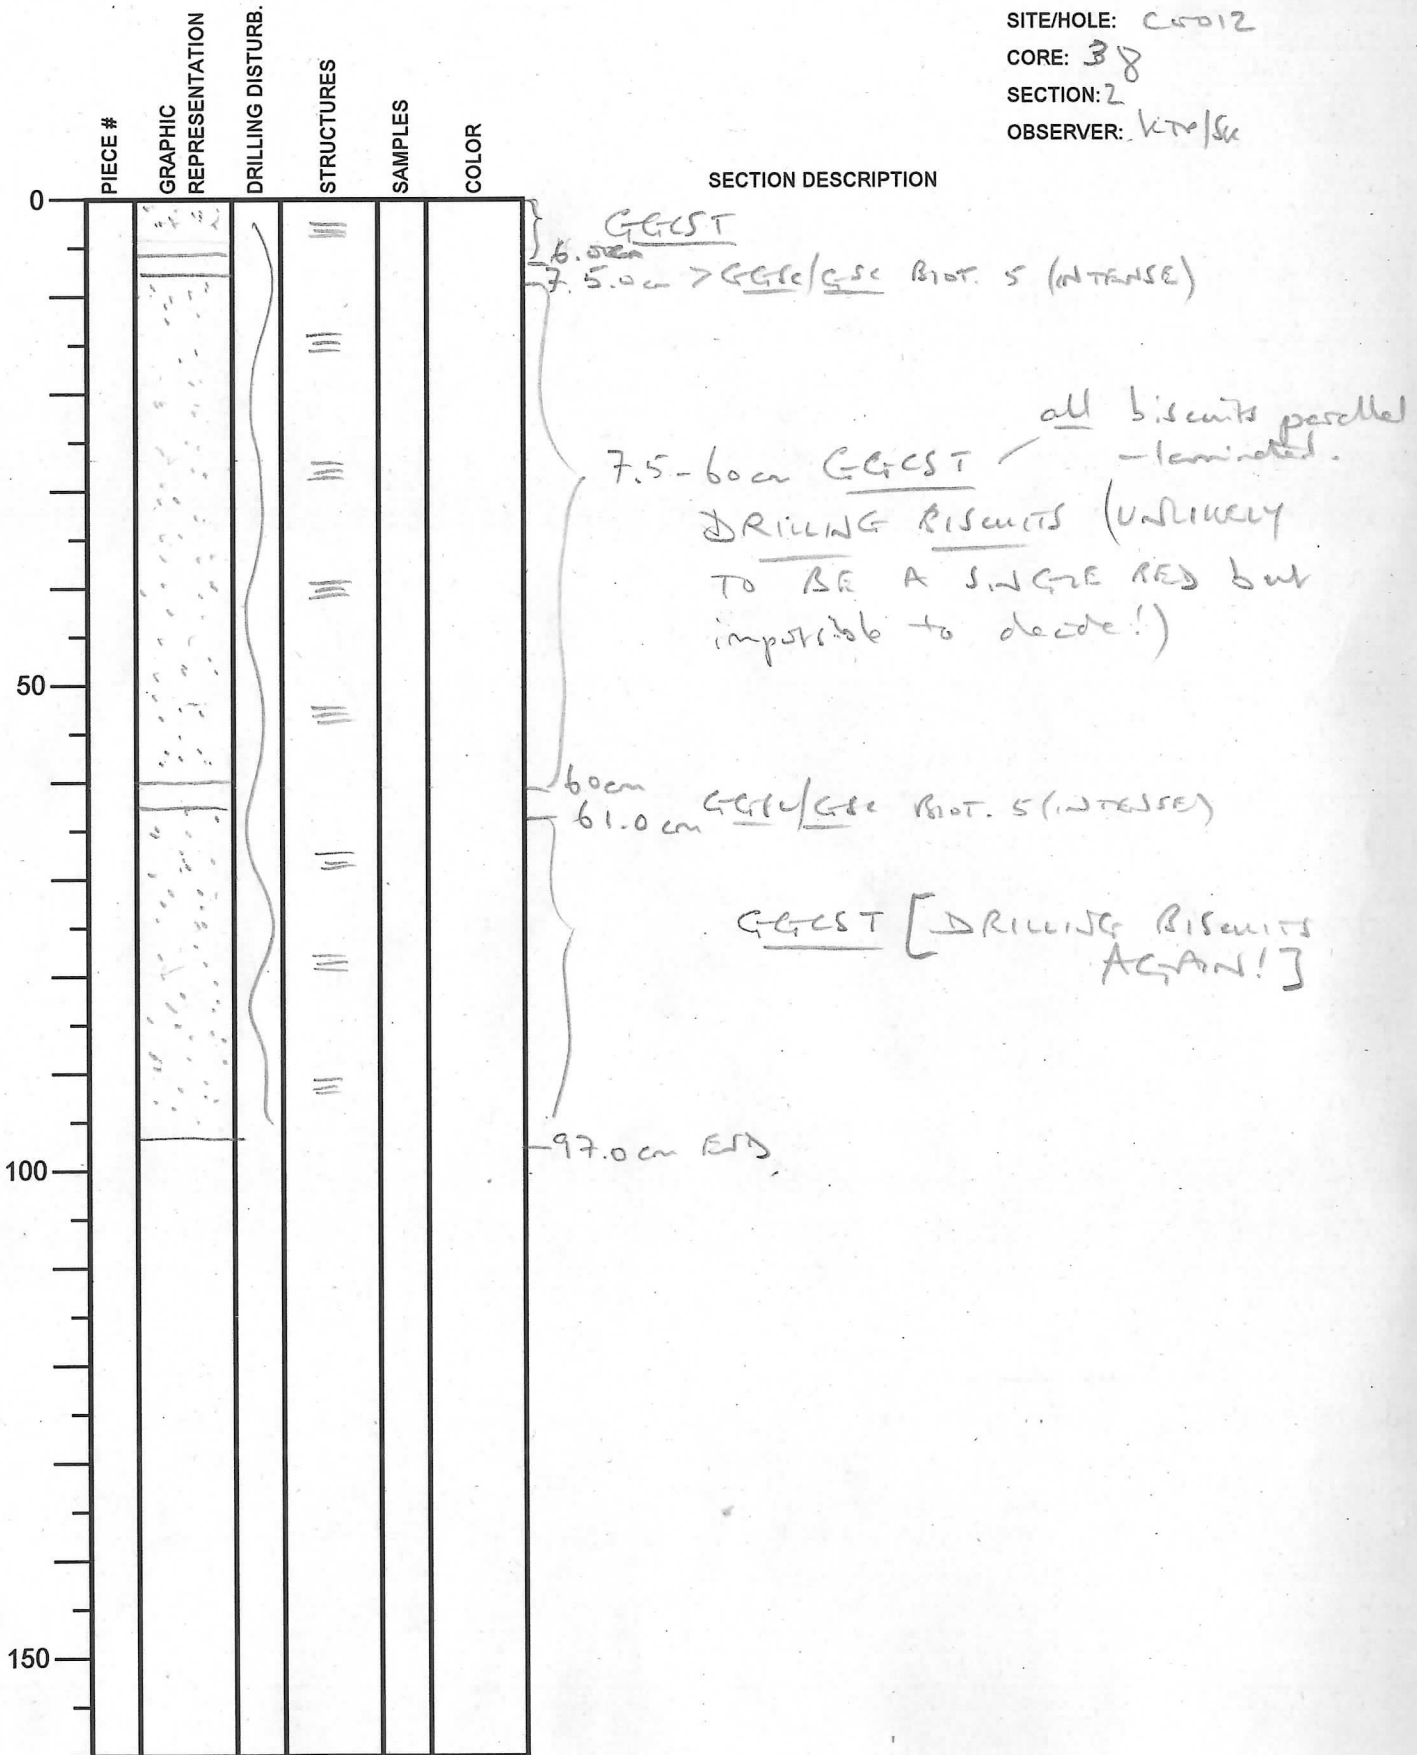 SITE/HOLE: C0012
CORE: 38
SECTION: 2
OBSERVER:
PIECE #
GRAPHIC REPRESENTATION
DRILLING DISTURB.
STRUCTURES
SAMPLES
COLOR
SECTION DESCRIPTION
0
GGCST
6.0cm
7.5.0cm > GGSC/GSC BIOT. 5 (INTENSE)
all biscuits parallel
-laminated.
7.5-60cm GGCST
DRILLING BISCUITS (UNLIKELY
TO BE A SINGLE BED but
impossible to decide!)
50
60cm
61.0cm GGSC/GSC BIOT. 5 (INTENSE)
GGCST [DRILLING BISCUITS
AGAIN!]
97.0cm END
100
150